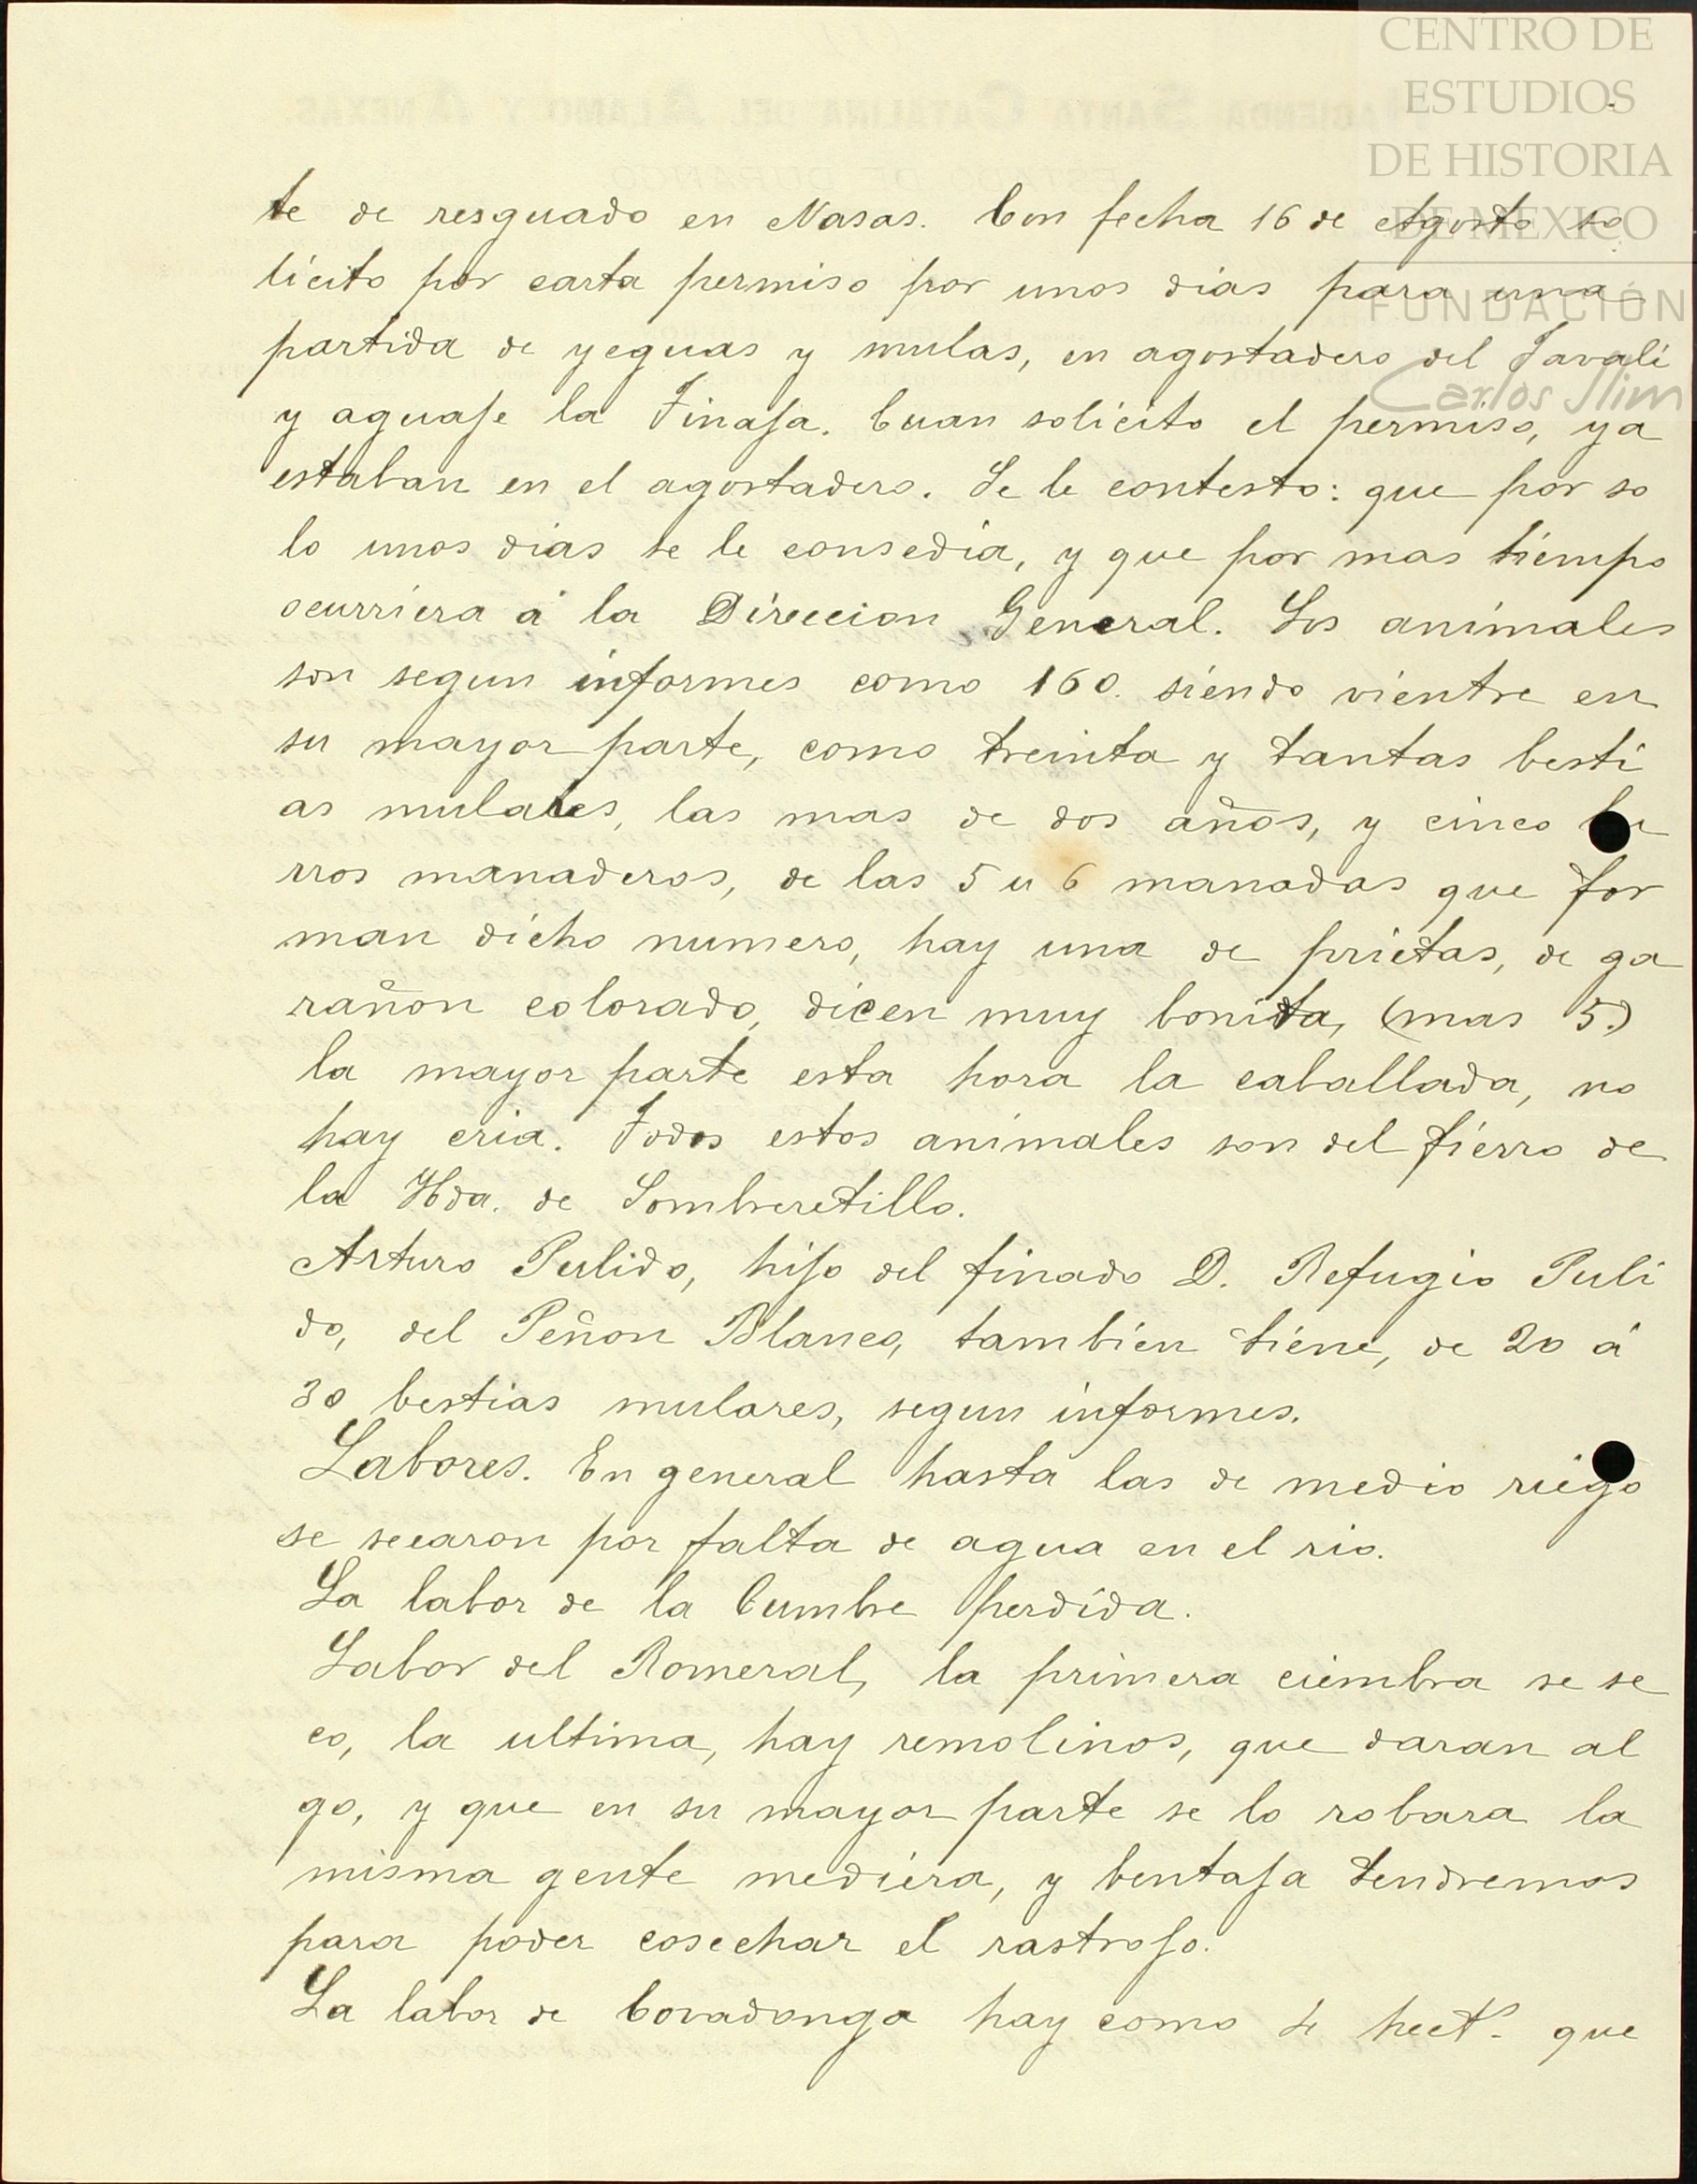 CENTRO DE
ESTUDIOS
DE HISTORIA
DE MEXICO
FUNDACIÓN
Carlos Slim
te de resguado en Nasas. Con fecha 16 de Agosto so
licito por carta permiso por unos dias para una
partida de yeguas y mulas, en agostadero del Javali
y aguaje la Tinaja. Cuan solicito el permiso, ya
estaban en el agostadero. Se le contesto: que por so
lo unos dias se le consedia, y que por mas tiempo
ocurriera á la Direccion General. Los animales
son segun informes como 160. siendo vientre en
su mayor parte, como treinta y tantas besti
as mulares, las mas de dos años, y cinco bu
rros manaderos, de las 5 u 6 manadas que for
man dicho numero, hay una de prietas, de ga
rañon colorado, dicen muy bonita, (mas 5.)
la mayor parte esta hora la caballada, no
hay cria. Todos estos animales son del fierro de
la Hda. de Sombreretillo.
Arturo Pulido, hijo del finado D. Refugio Puli
do, del Peñon Blanco, tambien tiene, de 20 á
30 bestias mulares, segun informes.
Labores. En general hasta las de medio riego
se secaron por falta de agua en el rio.
La labor de la Cumbre perdida.
Labor del Romeral, la primera ciembra se se
co, la ultima, hay remolinos, que daran al
go, y que en su mayor parte se lo robara la
misma gente mediera, y bentaja tendremos
para poder cosechar el rastrojo.
La labor de Covadonga hay como 4 hects. que